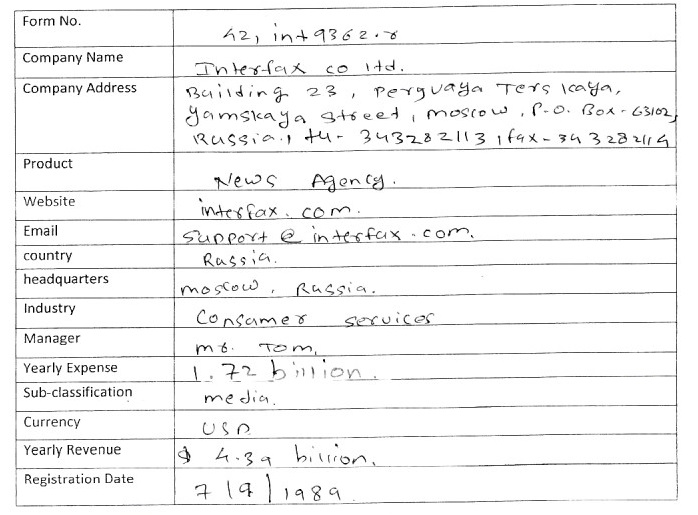 Form No. 42, int9362.r
Company Name Interfax co ltd.
Company Address Building 23, Perguaya Terskaya,
Yamskaya Street, Moscow, P.O. Box-63102,
Russia., tel- 343282113, fax-343282114
Product News Agency.
Website interfax.com.
Email support@interfax.com.
country Russia.
headquarters moscow, Russia.
Industry Consumer services
Manager mr. Tom.
Yearly Expense 1.72 billion.
Sub-classification media.
Currency USD
Yearly Revenue $ 4.39 billion.
Registration Date 7/9/1989